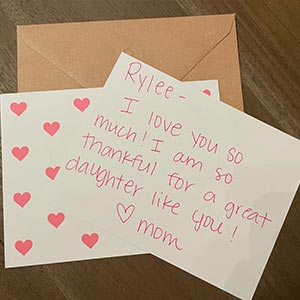 Rylee-
I love you so
much! I am so
thankful for a great
daughter like you!
♡ mom